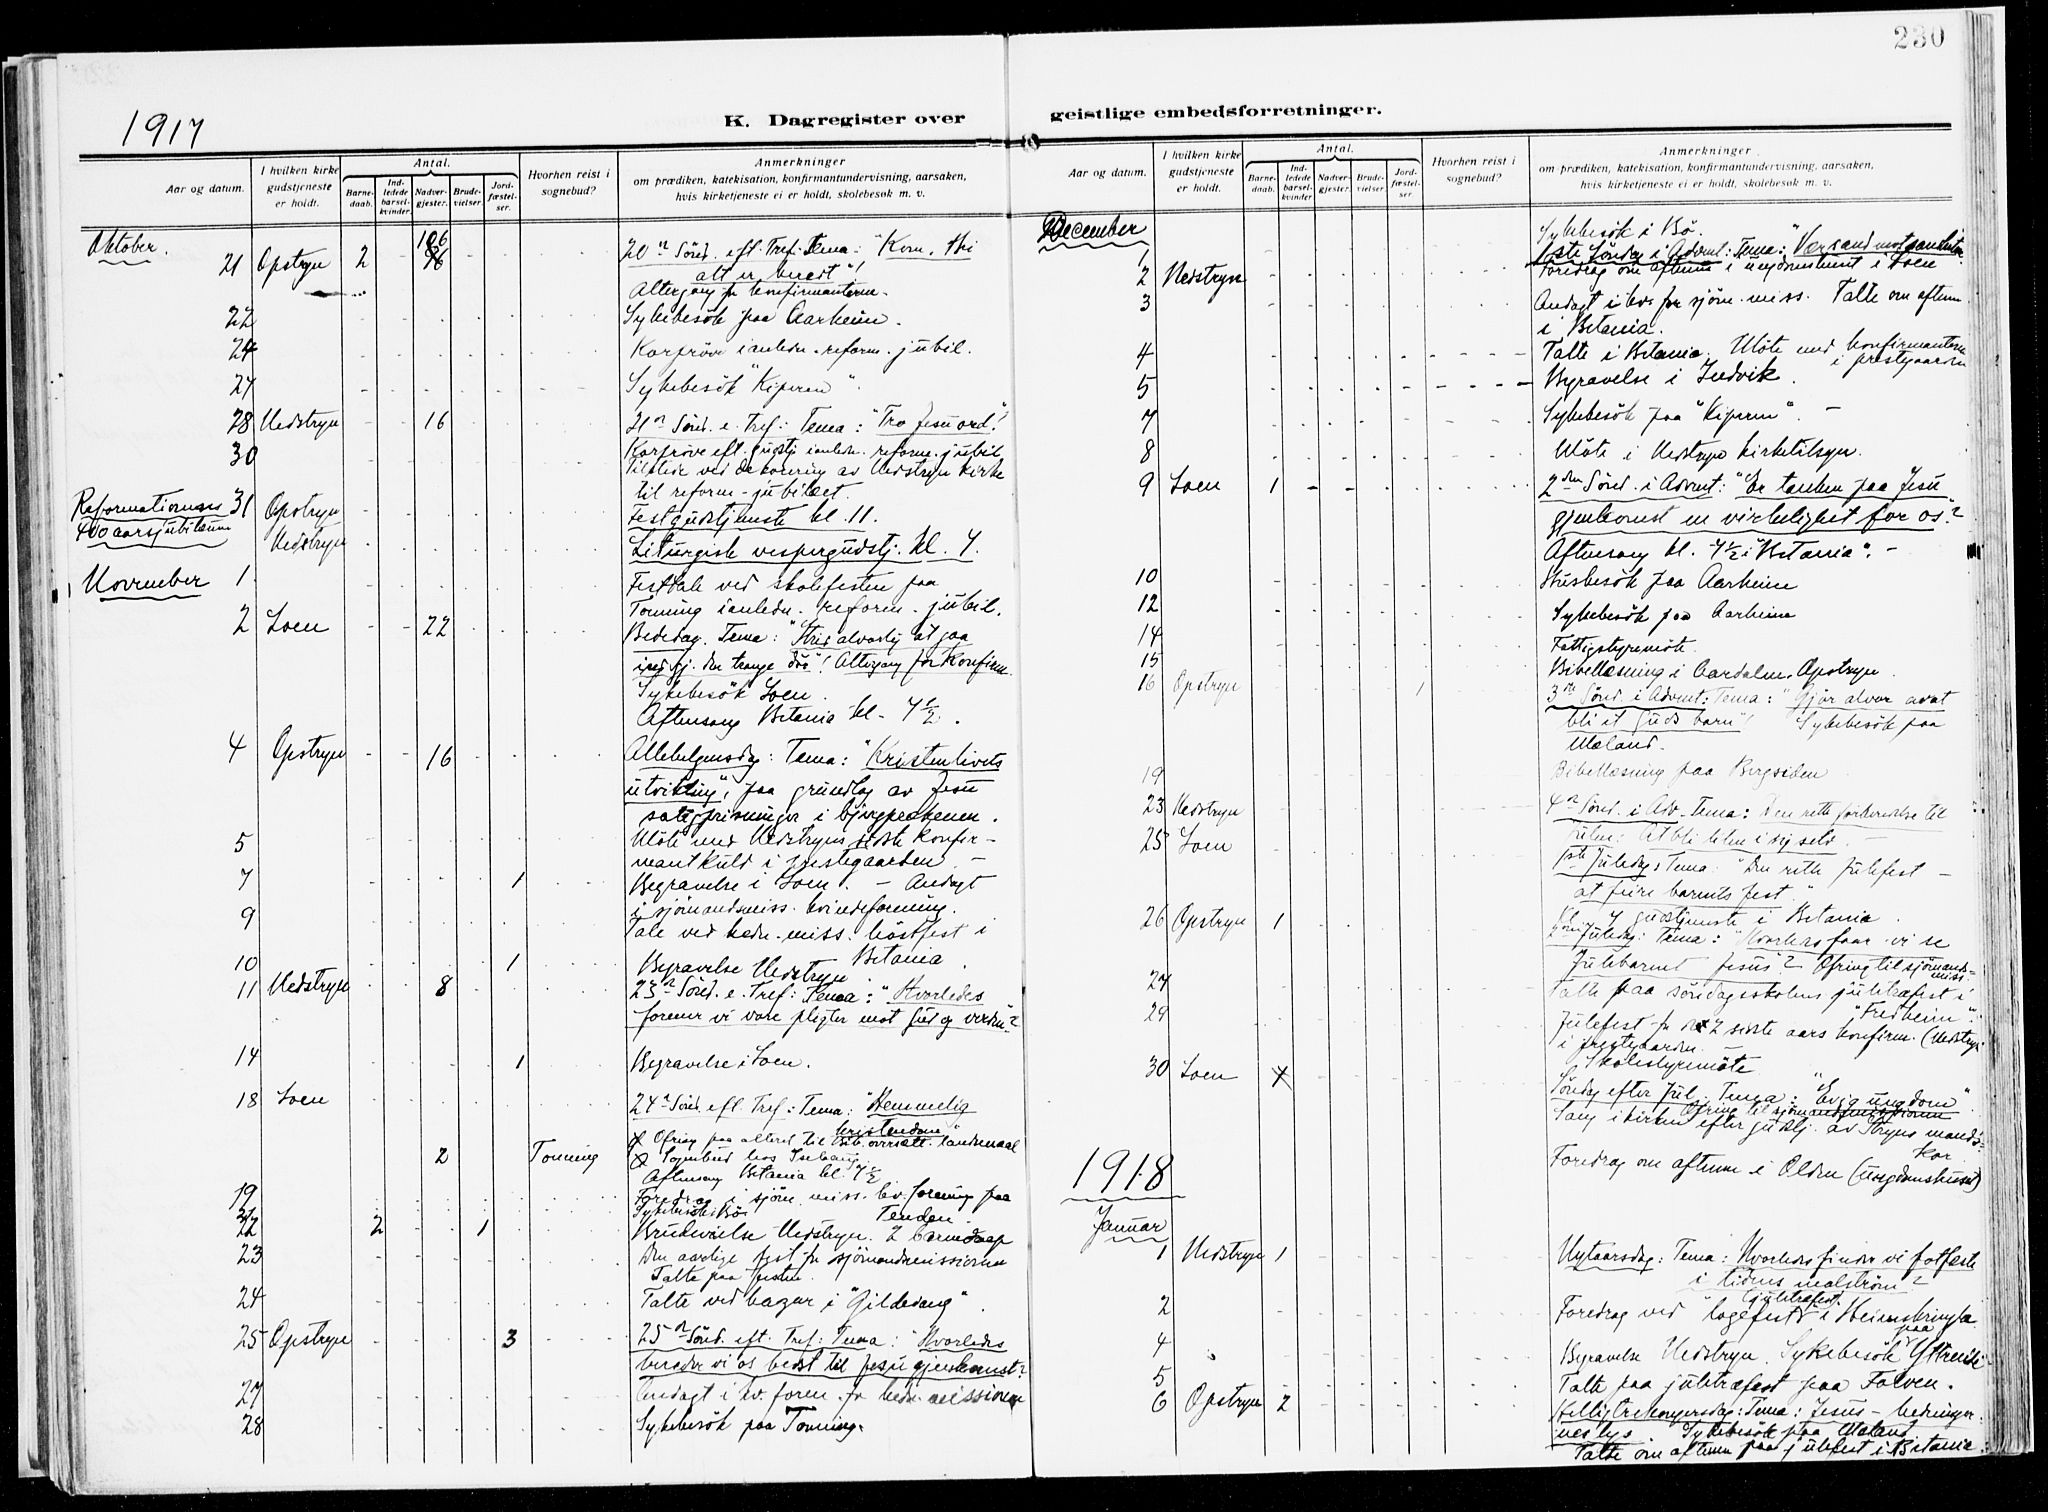 230
1917
K. Dagregister over geistlige embedsforretninger.
Aar og datum.
I hvilken kirke gudstjeneste er holdt.
Antal.
Barne-daab.
Ind-ledede barsel-kvinder.
Nadver-gjester.
Brude-vielser.
Jord-fæstel-ser.
Hvorhen reist i sognebud?
Anmerkninger
om prædiken, katekisation, konfirmantundervisning, aarsaken,
hvis kirketjeneste ei er holdt, skolebesøk m. v.
Oktober.
21 Opstryn 2 106 20n Sönd. eft. Tref. Tema: "Kom, thi
alt er beredt"!
Altergang for konfirmanterne.
22 Sykebesök paa Aarheim.
24 Korpröve i anledn. reform. jubil.
27 Sykebesök "Kiperen".
28 Nedstryn 16 21n Sönd. e. Tref: Tema: "Tro Jesu ord"!
30 Korpröve eft. gudstj. i anledn. reform. jubil.
Tilstede ved dekorering av Nedstryn kirke
til reform-jubilæet.
Reformationens 31 Opstryn Festgudstjeneste kl. 11.
400 aarsjubilæum Nedstryn Liturgisk vespergudstj. kl. 7.
November 1. Festtale ved skolefesten paa
Tonning i anledn. reform. jubil.
2 Loen 22 Bededag. Tema: "Strid alvorlig at gaa
ind gj. den trange dör"! Altergang for konfirm.
Sykebesök Loen.
Aftensang Betania kl. 7½.
4 Opstryn 16 Allehelgensdag: Tema: "Kristenlivets
utvikling", paa grundlag av Jesu
saligprisninger i bjergprekenen.
5 Möte med Nedstryns sidste konfir-
mantkuld i prestegaarden. -
7 1 Begravelse i Loen. - Andagt
i sjömandsmiss. kvindeforening.
9 Tale ved hedn. miss. höstfest i
Betania.
10 1 Begravelse Nedstryn
11 Nedstryn 8 23n Sönd. e. Tref: Tema: "Hvorledes
forener vi vore pligter mot Gud og verden"?
14 1 Begravelse i Loen.
18 Loen 24n Sönd. eft. Tref: Tema: "Hemmelig
kristendom"
Ofring paa alteret til bib. oversætt. landsmaal
2 Tonning Sognebud hos
Aftensang Betania kl. 7½
19 Foredrag i sjöm. miss. kv. forening paa
Tenden.
21 Sykebesök Bö
22 2 1 Brudevielse Nedstryn. 2 barnedaap
23 Den aarlige fest for sjömandsmissionen
Talte paa festen.
24 Talte ved bazar i "Gildevang".
25 Opstryn 3 25n Sönd. eft. Tref: Tema: "Hvorledes
bereder vi os bedst til Jesu gjenkomst?
27 Andagt i kv. foren. for hedn. missionen
28 Sykebesök paa Tonning.
Aar og datum.
I hvilken kirke gudstjeneste er holdt.
Antal.
Barne-daab.
Ind-ledede barsel-kvinder
Nadver-gjester.
Brude-vielser.
Jord-fæstel-ser.
Hvorhen reist i sognebud?
Anmerkninger
om prædiken, katekisation, konfirmantundervisning, aarsaken,
hvis kirketjeneste ei er holdt, skolebesøk m. v.
December
1 Sykebesök i Bö.
2 Nedstryn 1ste Söndag i Advent: Tema: "Vær sand mot sandheten
Foredrag om aftenen i ungdomshuset i Loen
3 Andagt i kv. for sjöm. miss. Talte om aftenen
i Betania.
4 Talte i Betania. Möte med konfirmanterne
i prestegaarden
5 Begravelse i Indvik.
7 Sykebesök paa "Kiperen". -
8 Möte i Nedstryn kirketilsyn.
9 Loen 1 2den Sönd. i Advent: "Er tanken paa Jesu
gjenkomst en virkelighet for os"?
Aftensang kl. 7½ i "Betania". -
10 Husbesök paa Aarheim
12 Sykebesök paa Aarheim
14 Fattigstyremöte.
15 Bibellæsning i Aardalen, Opstryn.
16 Opstryn 1 3die Sönd. i Advent: Tema: "Gjör alvor av at
bli et Guds barn"! Sykebesök paa
Mæland.
19 Bibellæsning paa Bergsiden
23 Nedstryn 4n Sönd. i Adv. Tema: Den rette forberedelse til
julen: At bli liten i sig selv.
25 Loen 1ste Juledag: Tema: "Den rette julefest -
at feire barnets fest."
Kl. 7 gudstjeneste i Betania.
26 Opstryn 1 2den Juledag: Tema: "Hvorledes faar vi se
Julebarnet Jesus"? Ofring til sjömands-
miss.
27 Talte paa söndagsskolens juletræfest i
"Fredheim".
29 Julefest for de 2 sidste aars konfirm. (Nedstryn
i prestegaarden. - Skolestyremöte
30 Loen Söndag efter Jul. Tema: "Evig ungdom"
Ofring til sjömandsmissionen
Sang i kirken efter gudstj. av Stryns mands-
kor.
Foredrag om aftenen i Olden (ungdomshuset)
1918
Januar
1 Nedstryn 1 Nytaarsdag: Tema: Hvorledes finder vi fotfæste
i tidens malström?
(juletræfest)
2 Foredrag ved "logefest" i Heimskringla
4 Begravelse Nedstryn. Sykebesök paa Ytreeide
5 Talte paa juletræfest paa Folven.
6 Opstryn 2 Helligtrekongersdag: Tema: Jesus - hedninger-
nes lys Sykebesök paa Mæland
Talte om aftenen paa julefest i Betania.